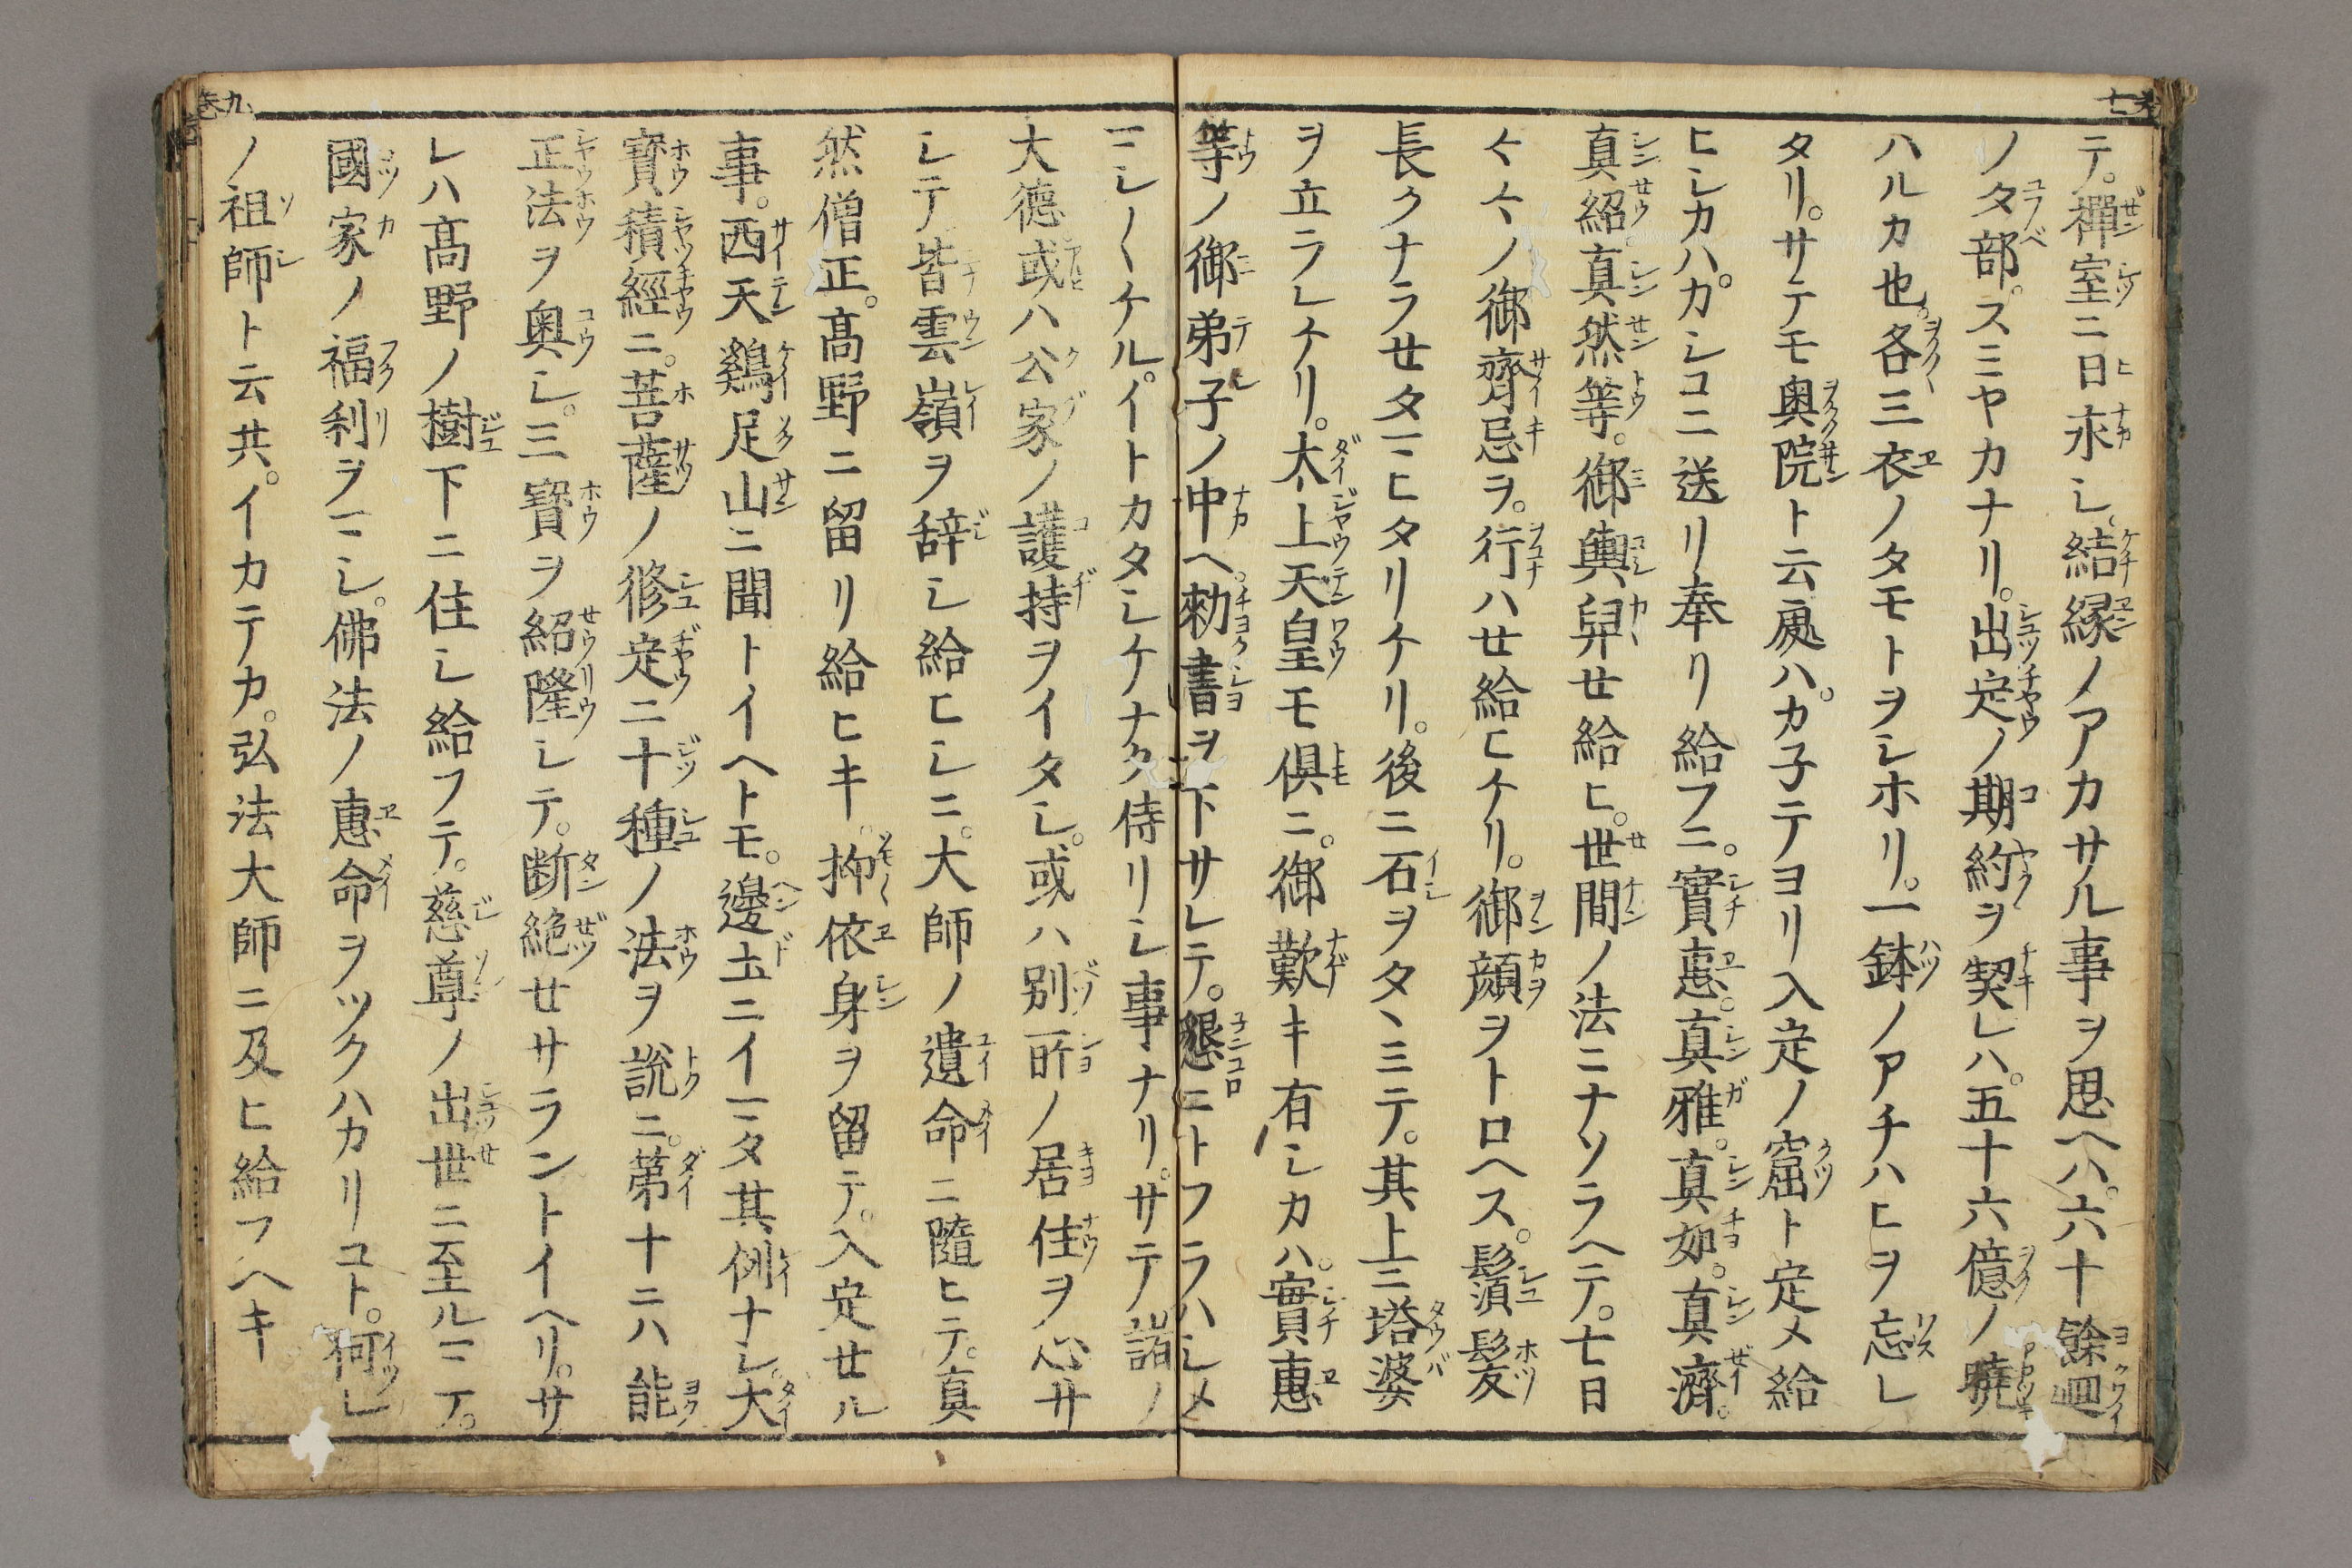 テ。禪室ニ日永シ。結縁ノアカサル事ヲ思ヘハ。六十餘廻
ノタ部。スミヤカナリ。出定ノ期約ヲ契レハ。五十六億ノ曉
ハルカ也。各三衣ノタモトヲシホリ。一鉢ノアチハヒヲ忘レ
タリ。サテモ奥院ト云処ハ。カ子テヨリ入定ノ窟ト定メ給
ヒシカハ。カシコニ送リ奉リ給フニ。實惠。真雅。真如。真濟。
真紹。真然等。御輿舁セ給ヒ。世間ノ法ニナソラヘテ。七日
〱〱ノ御齋忌ヲ。行ハセ給ヒケリ。御顔ヲトロヘス。鬚髮
長クナラセタマヒタリケリ。後ニ石ヲタヽミテ。其上ニ塔婆
ヲ立ラレケリ。太上天皇モ倶ニ。御歎キ有シカハ。實惠
等ノ御弟子ノ中ヘ。勅書ヲ下サレテ。懇ニトフラハシメ
マシ〱ケル。イトカタシケナク侍リシ事ナリ。サテ諸ノ
大徳。或ハ公家ノ護持ヲイタシ。或ハ別所ノ居住ヲ心サ
シテ。皆雲嶺ヲ辞シ給ヒシニ。大師ノ遺命ニ隨ヒテ。真
然僧正。髙野ニ留リ給ヒキ。抑依身ヲ留テ。入定セル
事。西天鷄足山ニ聞トイヘトモ。邊土ニイマタ其例ナシ。大
寳積經ニ。菩薩ノ修定ニ十種ノ法ヲ説ニ。第十ニハ能
正法ヲ奥シ。三寳ヲ紹隆シテ。断絶セサラントイヘリ。サ
レハ髙野ノ樹下ニ住シ給フテ。慈尊ノ出世ニ至ルマテ。
國家ノ福利ヲマシ。佛法ノ惠命ヲツクハカリコト。何レ
ノ祖師ト云共。イカテカ。弘法大師ニ及ヒ給フヘキ